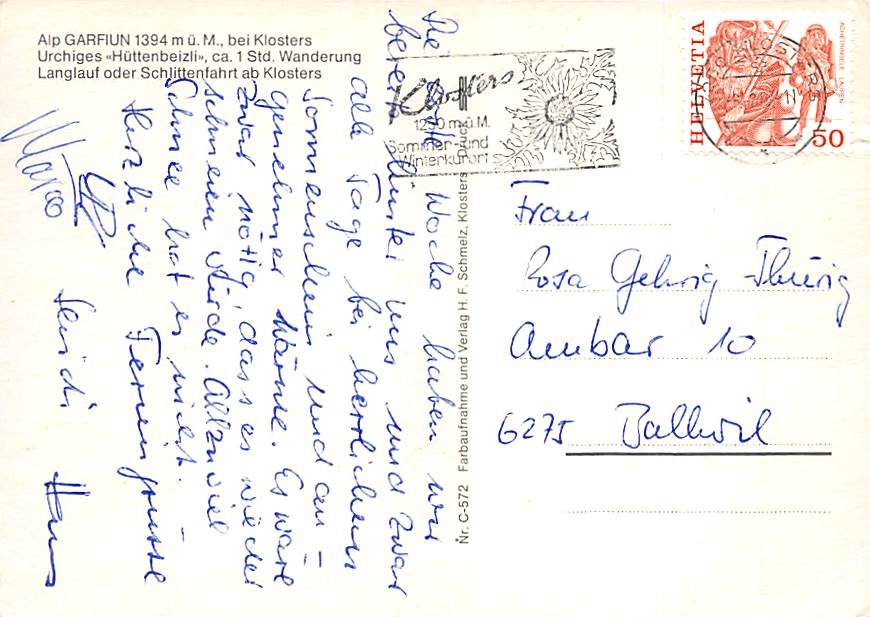 Alp GARFIUN 1394 m ü. M., bei Klosters
Urchiges «Hüttenbeizli», ca. 1 Std. Wanderung
Langlauf oder Schlittenfahrt ab Klosters
Die Woche haben wir
bereits hinter uns und zwar
alle Tage bei herrlichem
Sonnenschein und an-
genehmer Wärme. Es wäre
zwar nötig, dass es wieder
schneien würde. Allzuviel
Schnee hat es nicht. -
Herzliche Feriengrüsse
Heidi Hans
Marco
Klosters
1250 m ü. M.
Sommer- und
Winterkurort
HELVETIA
ACHETRINGELE LAUPEN
50
Nr. C-572 Farbaufnahme und Verlag H. F. Schmelz, Klosters
Frau
Rosa Gehrig-Thürig
Ambar 10
6275 Ballwil